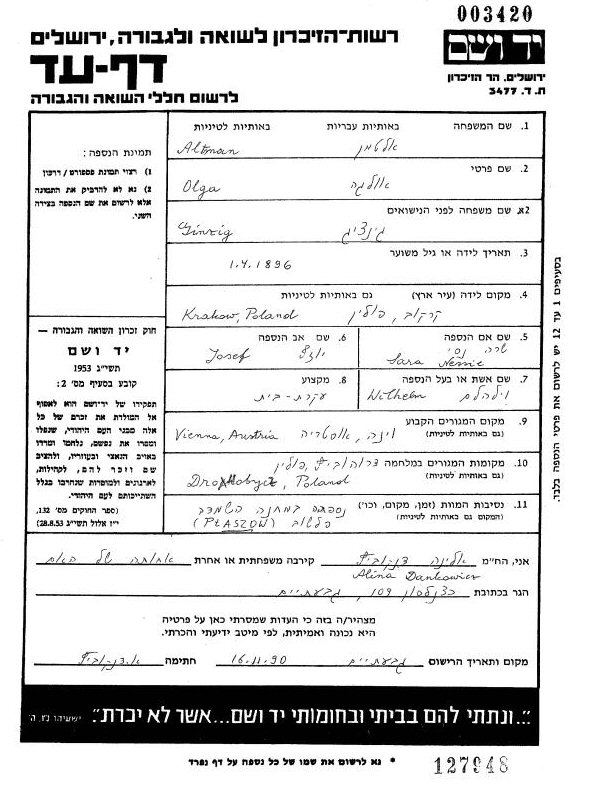 003420
יד ושם
ירושלים, הר הזיכרון
ת. ד. 3477
רשות-הזיכרון לשואה ולגבורה, ירושלים
דף-עד
לרשום חללי השואה והגבורה
תמונת הנספה:
1) רצוי תמונת פספורט / דרכון
2) נא לא להדביק את התמונה
אלא לרשום את שם הנספה בצידה
השני.
חוק זכרון השואה והגבורה —
יד ושם
תשי״ג 1953
קובע בסעיף מס׳ 2:
תפקידו של יד-ושם הוא לאסוף
אל המולדת את זכרם של כל
אלה מבני העם היהודי, שנפלו
ומסרו את נפשם, נלחמו ומרדו
באויב הנאצי ובעוזריו, ולהציב
שם וזכר להם, לקהילות,
לארגונים ולמוסדות שנחרבו בגלל
השתייכותם לעם היהודי.
(ספר החוקים מס׳ 132,
י״ז אלול תשי״ג 28.8.53)
1. שם המשפחה באותיות עבריות באותיות לטיניות
אלטמן Altman
2. שם פרטי
אולגה Olga
2א. שם משפחה לפני הנישואים
גינציג Ginzig
3. תאריך לידה או גיל משוער
1.4.1896
4. מקום לידה (עיר ארץ) גם באותיות לטיניות
קרקוב, פולין Krakow, Poland
5. שם אם הנספה
שרה נסי
Sara Nessie
6. שם אב הנספה
יוזף Josef
7. שם אשת או בעל הנספה
וילהלם Wilhelm
8. מקצוע
עקרת-בית
9. מקום המגורים הקבוע
(גם באותיות לטיניות)
וינה, אוסטריה Vienna, Austria
10. מקומות המגורים במלחמה
(גם באותיות לטיניות)
דרוהוביץ, פולין
Drohobycz, Poland
11. נסיבות המוות (זמן, מקום, וכו׳)
(המקום גם באותיות לטיניות)
נספתה במחנה השמדה
פלשוב (PŁASZÓW)
אני, הח״מ אלינה דנקוביץ קירבה משפחתית או אחרת אחותה של האם
Alina Dankowicz
הגר בכתובת כצנלסון 109, גבעתיים
מצהיר/ה בזה כי העדות שמסרתי כאן על פרטיה
היא נכונה ואמיתית, לפי מיטב ידיעתי והכרתי.
מקום ותאריך הרישום גבעתיים 16.11.90 חתימה א. דנקוביץ
״...ונתתי להם בביתי ובחומותי יד ושם...אשר לא יכרת״. ישעיהו נ״ו, ה׳
* נא לרשום את שמו של כל נספה על דף נפרד
127948
בסעיפים 1 עד 12 יש לרשום את פרטי הנספה בלבד.